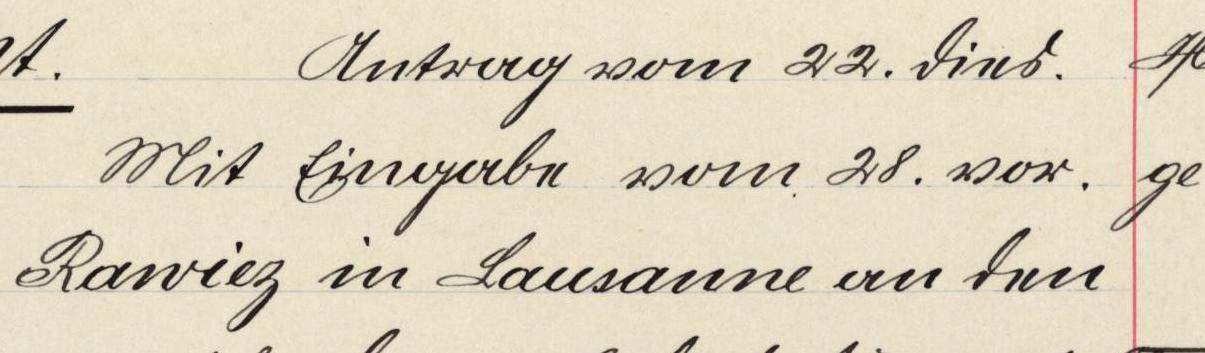 Antrag vom 22. dies.
Mit Eingabe vom 28. vor. ge
Rawicz in Lausanne an den